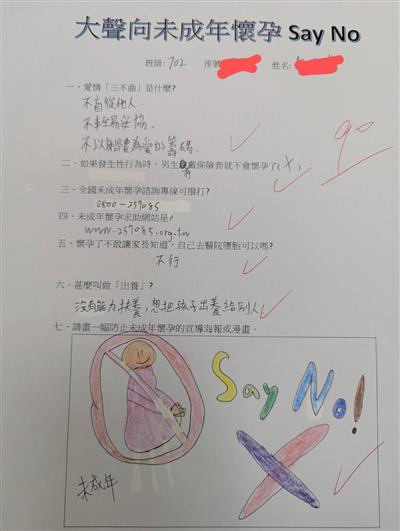 大聲向未成年懷孕 Say No
班級: 702 座號 姓名:
一、愛情「三不曲」是什麼?
不盲從他人.
不輕易妥協.
不以身體為愛的籌碼.
90
二、如果發生性行為時,男生有戴保險套就不會懷孕了(X)
三、全國未成年懷孕諮詢專線可撥打?
0800-257085
四、未成年懷孕求助網站是
www.257085.org.tw
五、懷孕了不敢讓家長知道,自己去醫院墮胎可以嗎?
不行
六、甚麼叫做「出養」?
沒有能力扶養,想把孩子出養給別人
七、請畫一幅防止未成年懷孕的宣導海報或漫畫。
Say No!
未成年